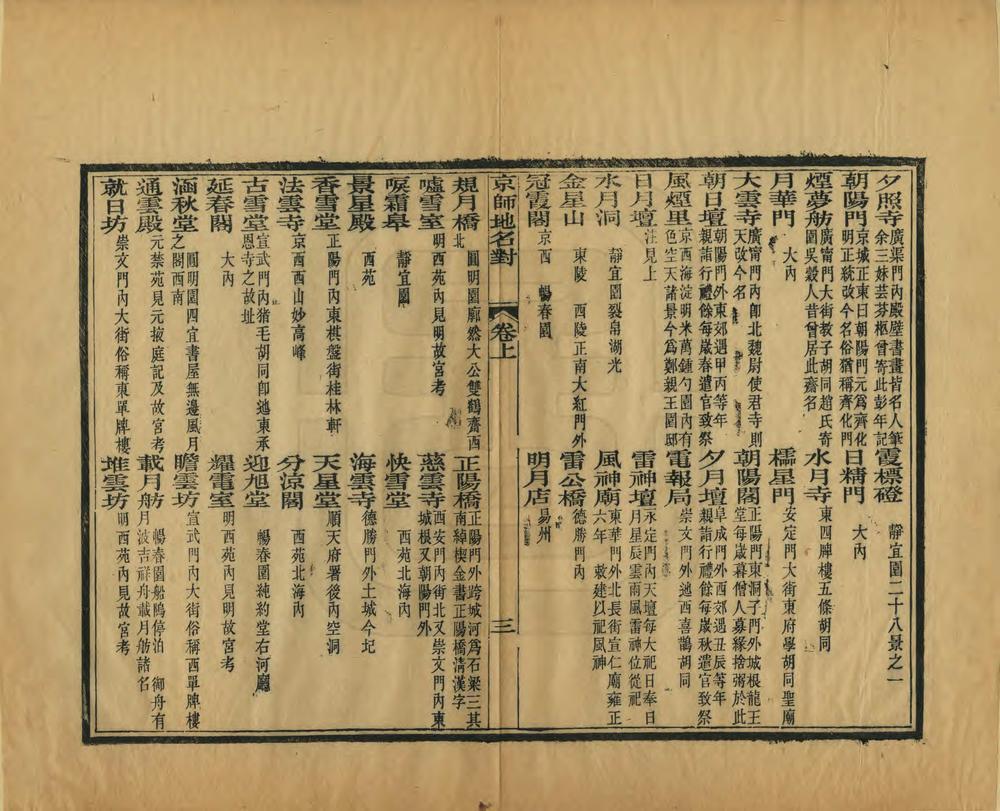 夕照寺 廣渠門內殿壁書畫皆名人筆余三妹芸芬柩曾寄此彭年記 霞標磴 靜宜園二十八景之一
朝陽門 京城正東曰朝陽門元爲齊化門明正統改今名俗猶稱齊化門 日精門 大內
煙夢舫 廣甯門大街教子胡同趙氏寄園吳穀人昔曾居此齋名 水月寺 東四牌樓五條胡同
月華門 大內 櫺星門 安定門大街東府學胡同聖廟
大雲寺 廣甯門內卽北魏尉使君寺則天改今名 朝陽閣 正陽門東洞子門外城根龍王堂每歲暮僧人募緣捨粥於此
朝日壇 朝陽門外東郊遇甲丙等年親詣行禮餘每歲春遣官致祭 夕月壇 阜成門外西郊遇丑辰等年親詣行禮餘每歲秋遣官致祭
風煙里 京西海淀明米萬鍾勺園內有色空天諸景今爲鄭親王園邸 電報局 崇文門外迤西喜鵲胡同
日月壇 注見上 雷神壇 永定門內天壇每大祀日奉日月星辰雲雨風雷神位從祀
水月洞 靜宜園裂帛湖光 風神廟 東華門外北長街宣仁廟雍正六年 敕建以祀風神
金星山 東陵 西陵正南大紅門外 雷公橋 德勝門內
冠霞閣 京西 暢春園 明月店 易州
京師地名對 卷上 三
規月橋 圓明園廓然大公雙鶴齋西北 正陽橋 正陽門外跨城河爲石梁三其南綽楔金書正陽橋清漢字
噓雪室 明西苑內見明故宮考 慈雲寺 西安門內街北又崇文門內東城根又朝陽門外
唳霜皋 靜宜園 快雪堂 西苑北海內
景星殿 西苑 海雲寺 德勝門外土城今圮
香雪堂 正陽門內東棋盤街桂林軒 天星堂 順天府署後內空洞
法雲寺 京西西山妙高峰 分涼閣 西苑北海內
古雪堂 宣武門內猪毛胡同卽迤東承恩寺之故址 迎旭堂 暢春園純約堂右河廳
延春閣 大內 耀電室 明西苑內見明故宮考
涵秋堂 圓明園四宜書屋無邊風月之閣西南 瞻雲坊 宣武門內大街俗稱西單牌樓
通雲殿 元禁苑見元掖庭記及故宮考 載月舫 暢春園船鴎停泊 御舟有舟月波吉祥舟載月舫諸名
就日坊 崇文門內大街俗稱東單牌樓 堆雲坊 明西苑內見故宮考